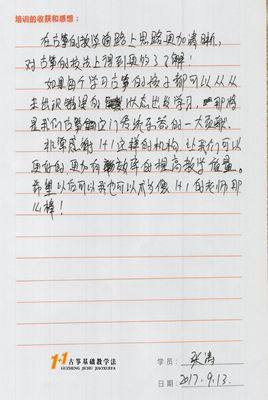 培训的收获和感想：
在古筝的教学道路上思路更加清晰，
对古筝的技法上得到更好的了解！
如果每个学习古筝的孩子都可以从
出识错误的状态出来学习，那将
是我们古筝这门传统乐器的一大贡献。
非常感谢1+1这样的机构，让我们可以
更好的，更加有效率的提高教学质量。
希望以后可以我也可以成为像1+1的老师那
么棒！
1+1古筝基础教学法
GUZHENG JICHU JIAOXUEFA
学员：张涛
日期：2017.9.13.